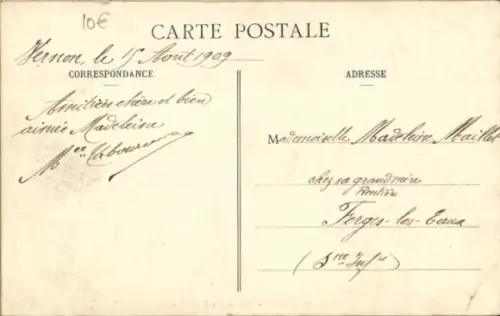 10€
CARTE POSTALE
Vernon, le 15 Août 1909
CORRESPONDANCE
Amitiés chère et bien
aimée Madeleine
ADRESSE
Mademoiselle Madeleine Maillet
chez sa grand mère
Rentière
Forges-les-Eaux
(Sne Infre)